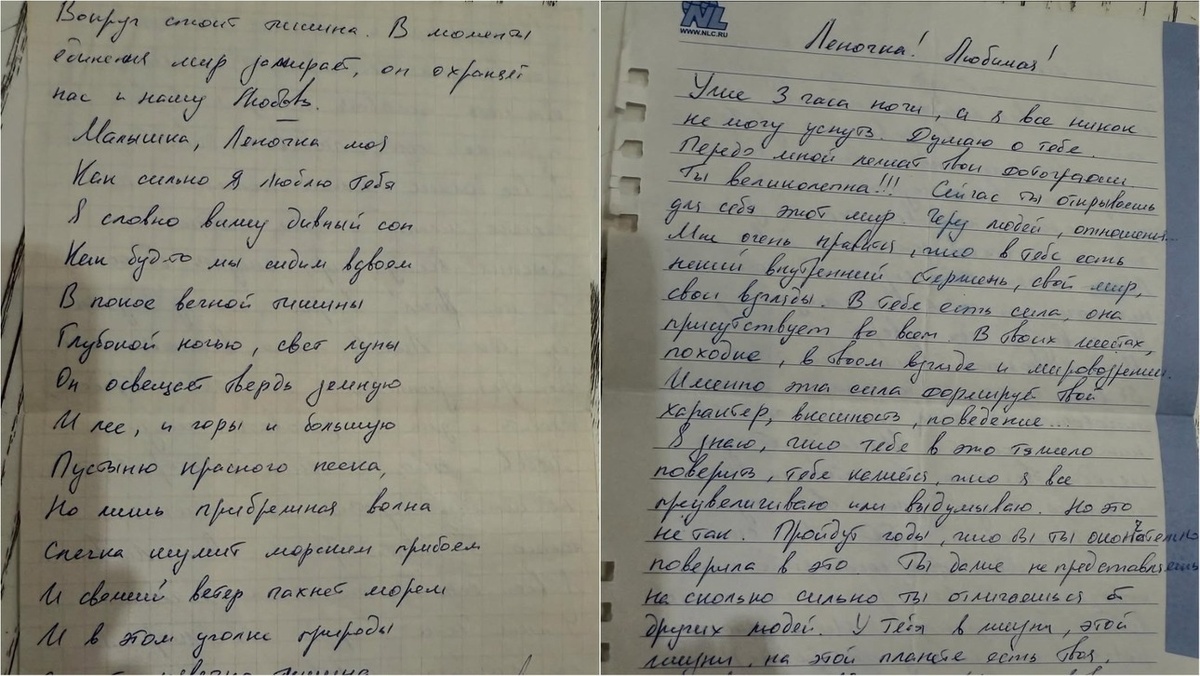 Вокруг стоит тишина. В моменты
единения мир замирает, он охраняет
нас и нашу Любовь.
Малышка, Леночка моя
Как сильно я люблю тебя
Я словно вижу дивный сон
Как будто мы сидим вдвоем
В покое вечной тишины
Глубокой ночью, свет луны
Он освещает твердь земную
И лес, и горы и большую
Пустыню красного песка,
Но лишь прибрежная волна
Слегка шумит морским прибоем
И свежий ветер пахнет морем
И в этом уголке природы
тишина
NL
WWW.NLC.RU
Леночка! Любимая!
Уже 3 часа ночи, а я все никак
не могу уснуть. Думаю о тебе.
Передо мной лежат твои фотографии.
Ты великолепна!!! Сейчас ты открываешь
для себя этот мир. Через людей, отношения...
Мне очень нравится, что в тебе есть
некий внутренний стержень, свой мир,
свои взгляды. В тебе есть сила, она
присутствует во всем. В твоих жестах,
походке, в твоем взгляде и мировоззрении.
Именно эта сила формирует твой
характер, внешность, поведение...
Я знаю, что тебе в это тяжело
поверить, тебе кажется, что я все
преувеличиваю или выдумываю. Но это
не так. Пройдут годы, что бы ты окончательно
поверила в это Ты даже не представляешь
на сколько сильно ты отличаешься от
других людей. У тебя в жизни, этой
жизни, на этой планете есть твоя,